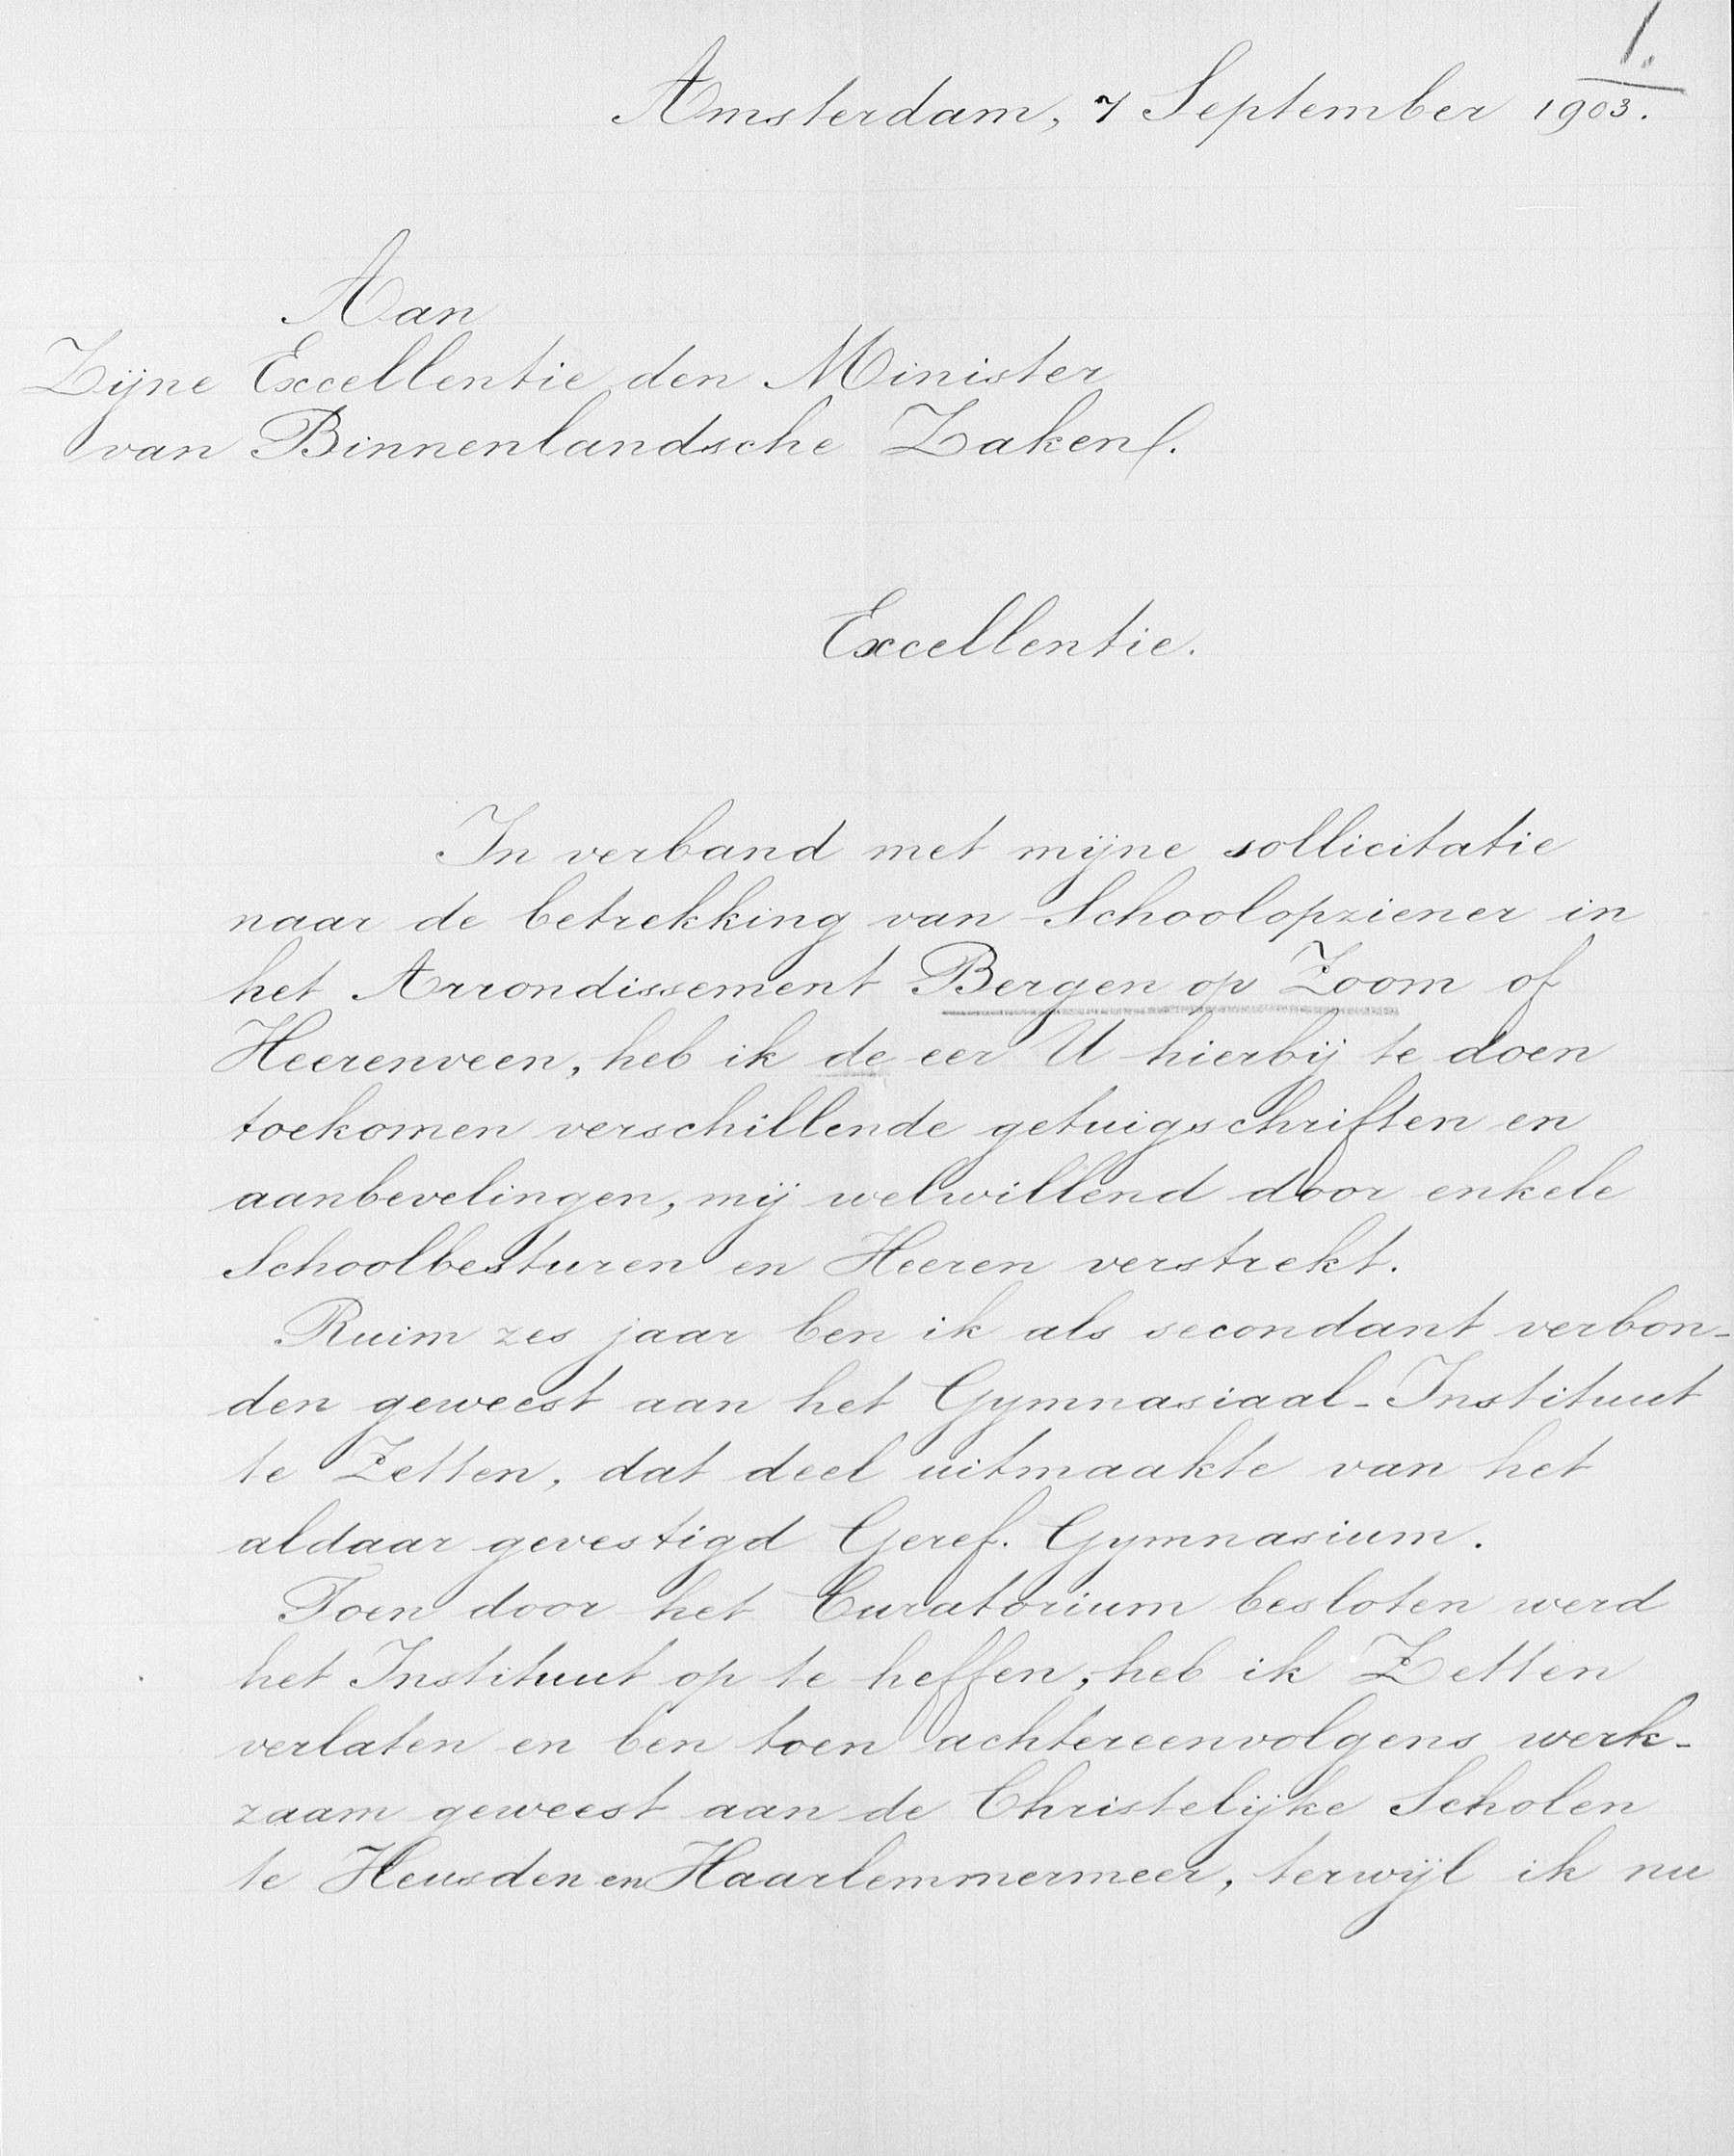 1.
Amsterdam, 7 September 1903.
Aan
Zijne Excellentie den Minister
van Binnenlandsche Zaken.
Excellentie.
In verband met mijne sollicitatie
naar de betrekking van Schoolopziener in
het Arrondissement Bergen op Zoom of
Heerenveen, heb ik de eer U hierbij te doen
toekomen verschillende getuigschriften en
aanbevelingen, mij welwillend door enkele
Schoolbesturen en Heeren verstrekt.
Ruim zes jaar ben ik als secondant verbon-
den geweest aan het Gymnasiaal-Instituut
te Zetten, dat deel uitmaakte van het
aldaar gevestigd Geref. Gymnasium.
Toen door het Curatorium besloten werd
het Instituut op te heffen, heb ik Zetten
verlaten en ben toen achtereenvolgens werk-
zaam geweest aan de Christelijke Scholen
te Heusden en Haarlemmermeer, terwijl ik nu